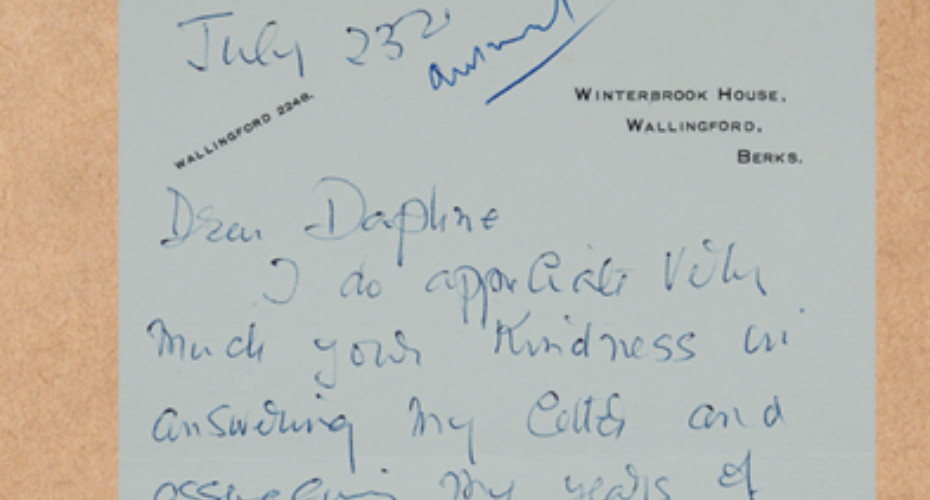 July 23rd
answered
WINTERBROOK HOUSE,
WALLINGFORD,
BERKS.
WALLINGFORD 2248.
Dear Daphne
I do appreciate very
much your kindness in
answering my letter and
my years of